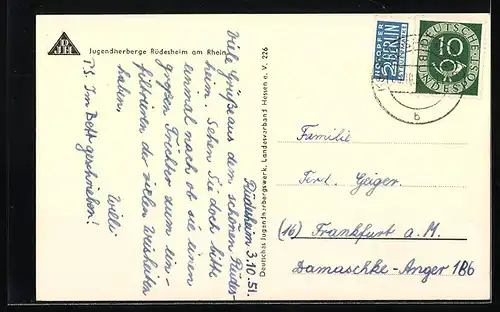 DJH
Jugendherberge Rüdesheim am Rhein
Rüdesheim 3.10.51.
Viele Grüße aus dem schönen Rüdes-
heim. Sehen Sie doch bitte
einmal nach ob sie einen
großen Trichter zum ein-
filtrieren der vielen Weisheiten
haben.
Willi
P.S. Im Bett geschrieben!
Deutsches Jugendherbergswerk, Landesverband Hessen e. V. 226
NOTOPFER
2 BERLIN
STEUERMARKE
DEUTSCHE
10
BUNDESPOST
b
Familie
Ferd. Geiger.
(16) Frankfurt a. M.
Damaschke-Anger 186